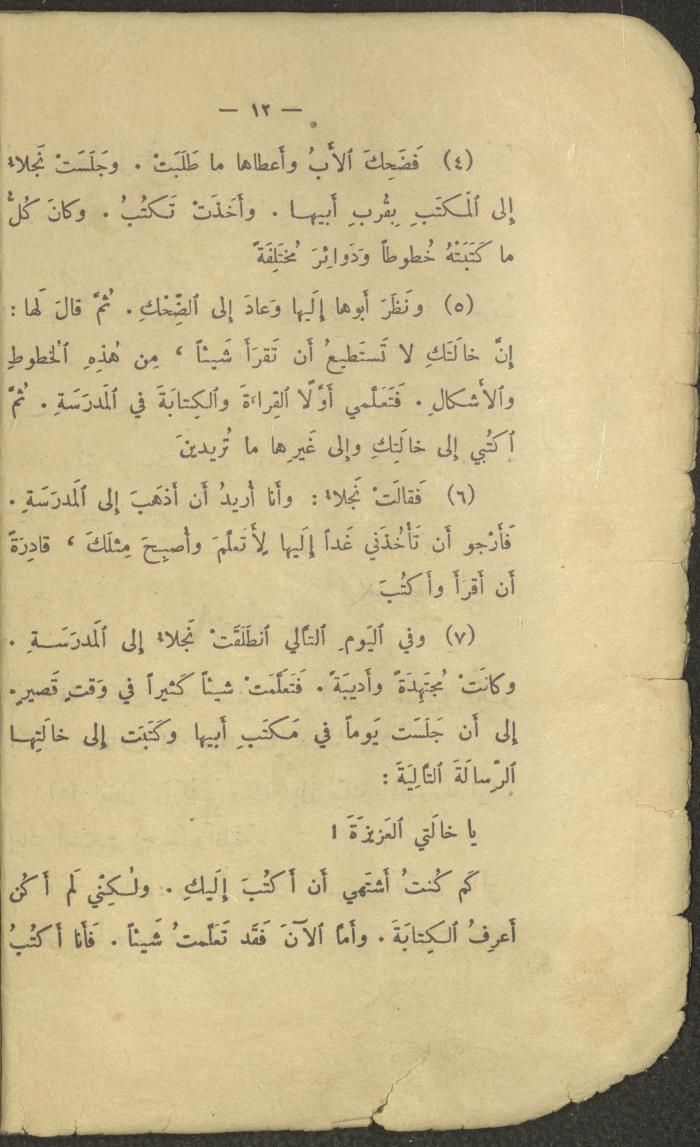 — ١٢ —
(٤) فَضَحِكَ ٱلأَبُ وأَعطاها ما طَلَبَتْ . وجَلَسَتْ نَجلاءُ
إلى ٱلمَكتَبِ بِقُربِ أَبيها . وأَخَذَتْ تَكتُبُ . وكانَ كُلُّ
ما كَتَبَتْهُ خُطوطاً وَدَوائِرَ مُختَلِفَةً
(٥) ونَظَرَ أَبوها إلَيها وَعادَ إلى ٱلضِّحْكِ . ثُمَّ قالَ لَها :
إنَّ خالَتَكِ لا تَستَطيعُ أَن تَقرَأَ شَيئاً ، مِن هٰذِهِ ٱلخُطوطِ
وٱلأَشكالِ . فَتَعَلَّمي أَوَّلًا ٱلقِراءَةَ وٱلكِتابَةَ في ٱلمَدرَسَةِ . ثُمَّ
ٱكتُبي إلى خالَتِكِ وإلى غَيرِها ما تُريدينَ
(٦) فَقالَتْ نَجلاءُ : وأَنا أُريدُ أَن أَذهَبَ إلى ٱلمَدرَسَةِ .
فَأَرْجو أَن تَأْخُذَني غَداً إلَيها لِأَتَعلَّمَ وأُصبِحَ مِثلَكَ ، قادِرَةً
أَن أَقرَأَ وأَكتُبَ
(٧) وفي ٱليَومِ ٱلتَّالي ٱنطَلَقَتْ نَجلاءُ إلى ٱلمَدرَسَةِ .
وكانَتْ مُجتَهِدَةً وأَديبَةً . فَتَعَلَّمَتْ شيئاً كَثيراً في وَقتٍ قَصيرٍ .
إلى أَن جَلَسَت يَوماً في مَكتَبِ أَبيها وكَتَبَت إلى خالَتِها
ٱلرِّسالَةَ ٱلتَّالِيَةَ :
يا خالَتي ٱلعَزيزَةَ !
كَم كُنتُ أَشتَهي أَن أَكتُبَ إلَيكِ . ولٰكِنّي لَم أَكُن
أَعرِفُ ٱلكِتابَةَ . وأَمَّا ٱلآنَ فَقَد تَعَلَّمتُ شَيئاً . فَأَنا أَكتُبُ